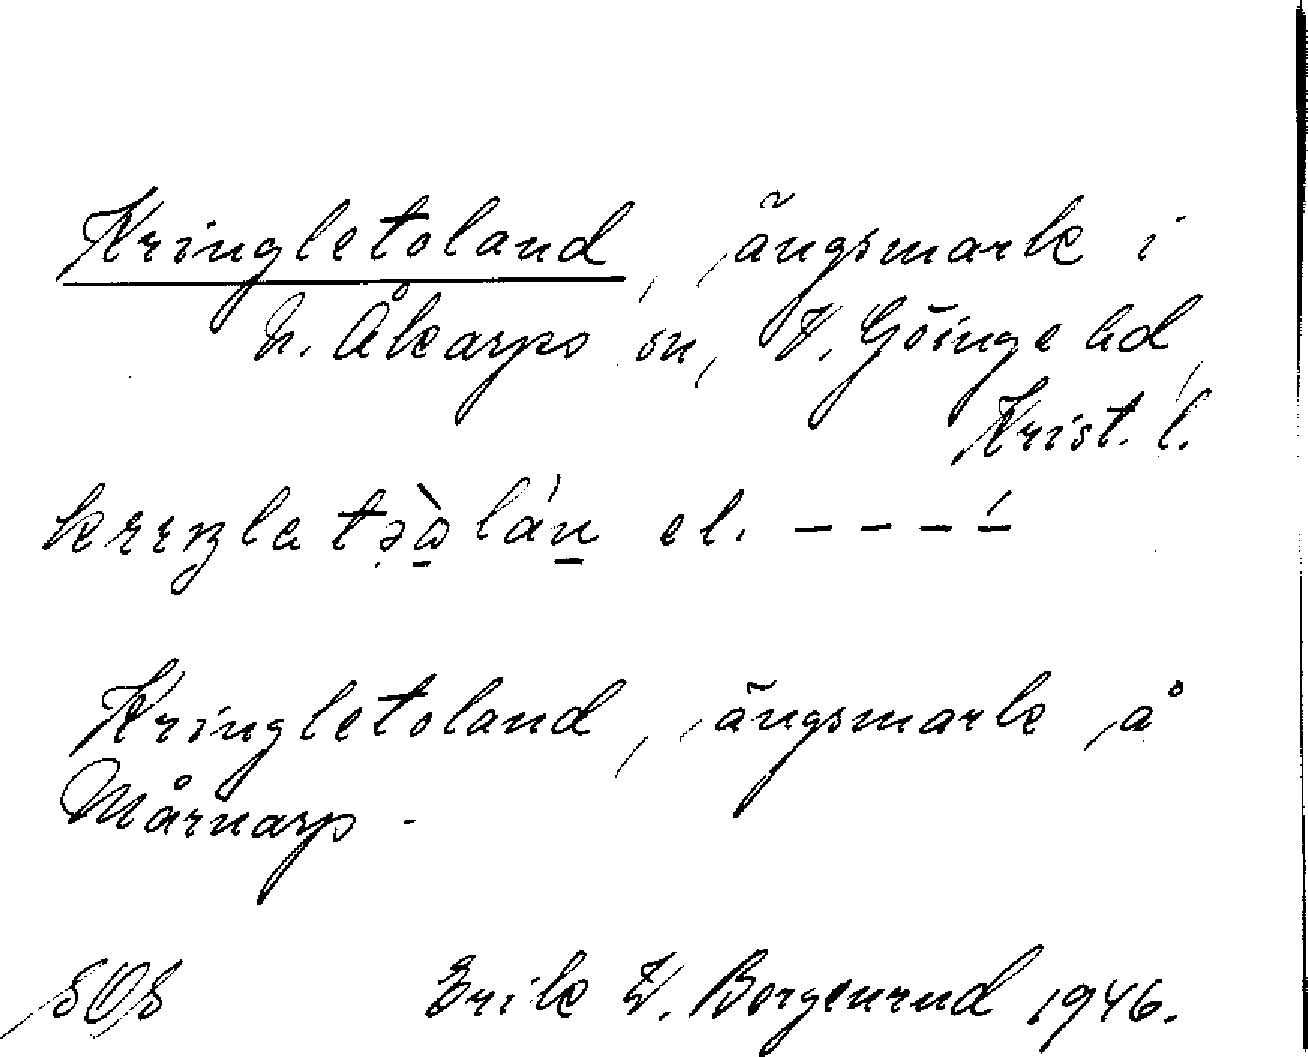 Kringletoland, ängsmark i
N. Åkarps sn, V. Göinge hd,
Krist. l.
el. – – – –́
Kringletoland, ängsmark å
Mårnarp.
Erik W. Borgenrud 1946.